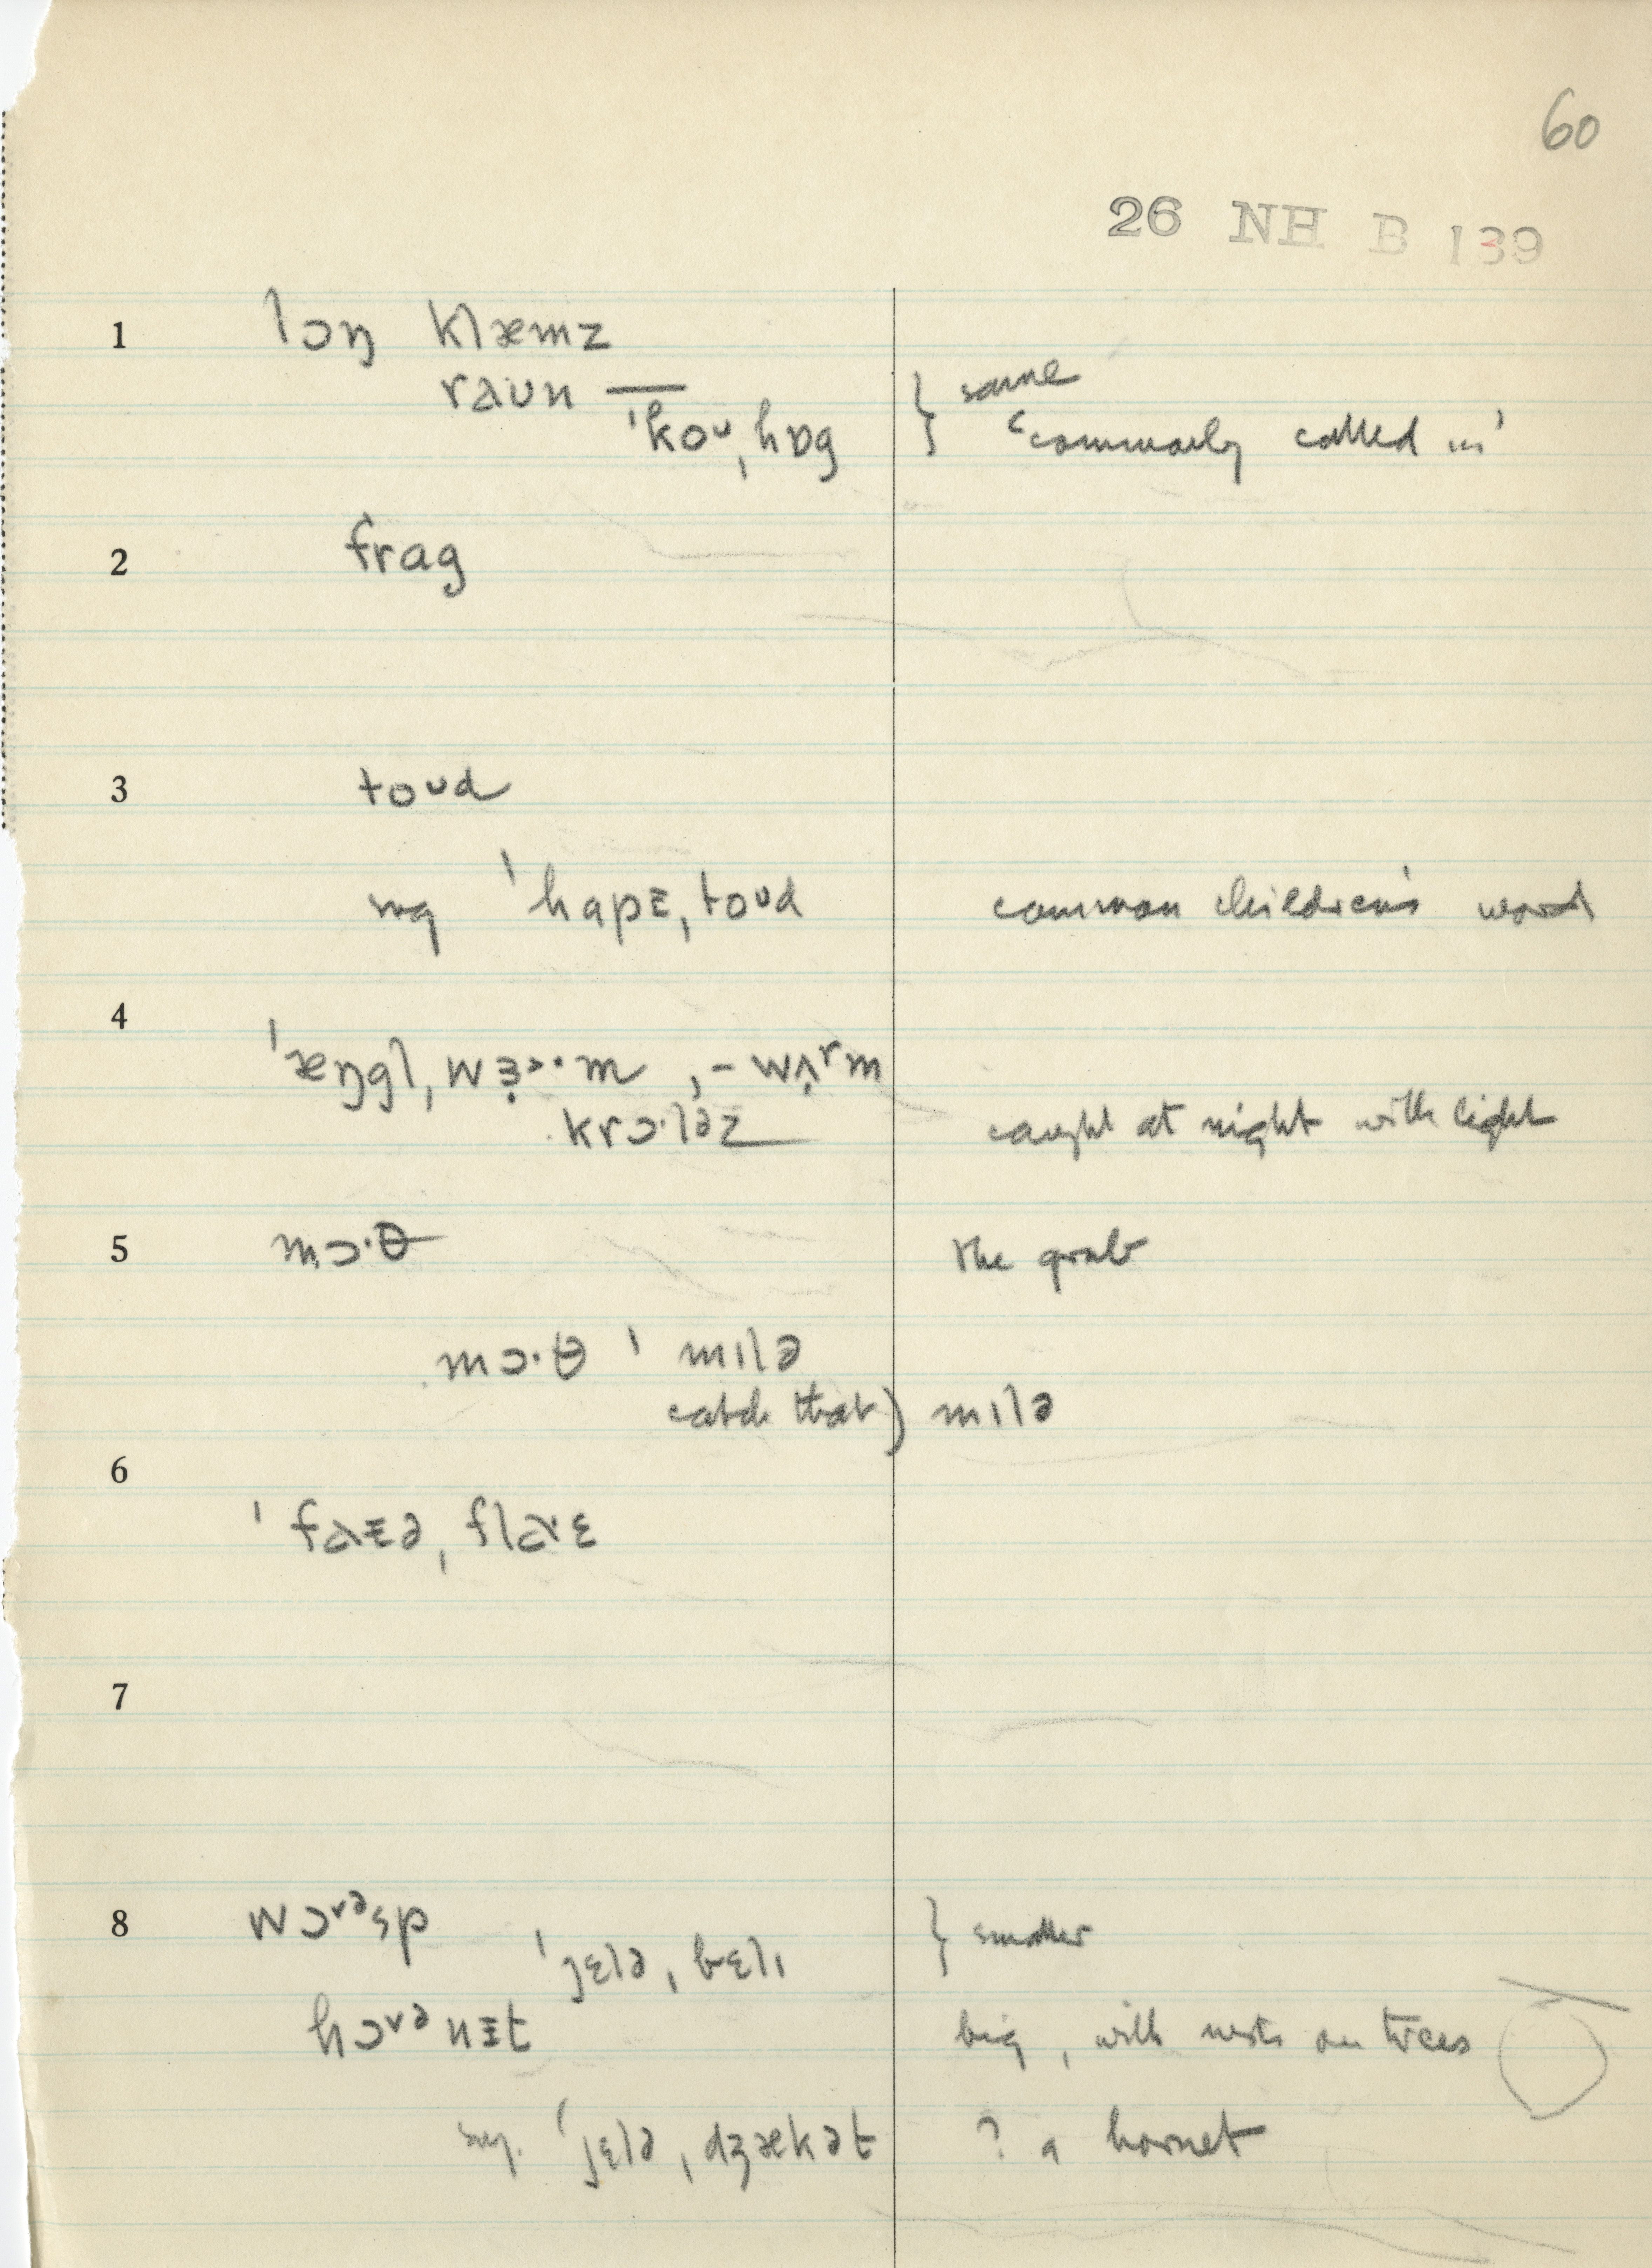 60
26 NH B 139
1 lɔŋ klæmz
raʊn — } same
ˈkoᴜˌhɒg 'commonly called …'
2 frag
3 toᴜd
sɪg ˈhapɪˌtoᴜd common children's word
4 ˈæŋglˌwɜ̣ɚ·m ,-wʌ̣ʳm
krɔ·ləz caught at night with light
5 mɔ·θ the grub
mɔ·θ ˈmɪlə
catch that) mɪlə
6 ˈfaɪəˌflaᵛɛ
7
8 wɔᵛᵊsp } smaller
ˈjɛləˌbɛlɪ
hɔᵛᵊnɪt big, with nests on trees
sɪg. ˈjɛləˌdʒækət ? a hornet